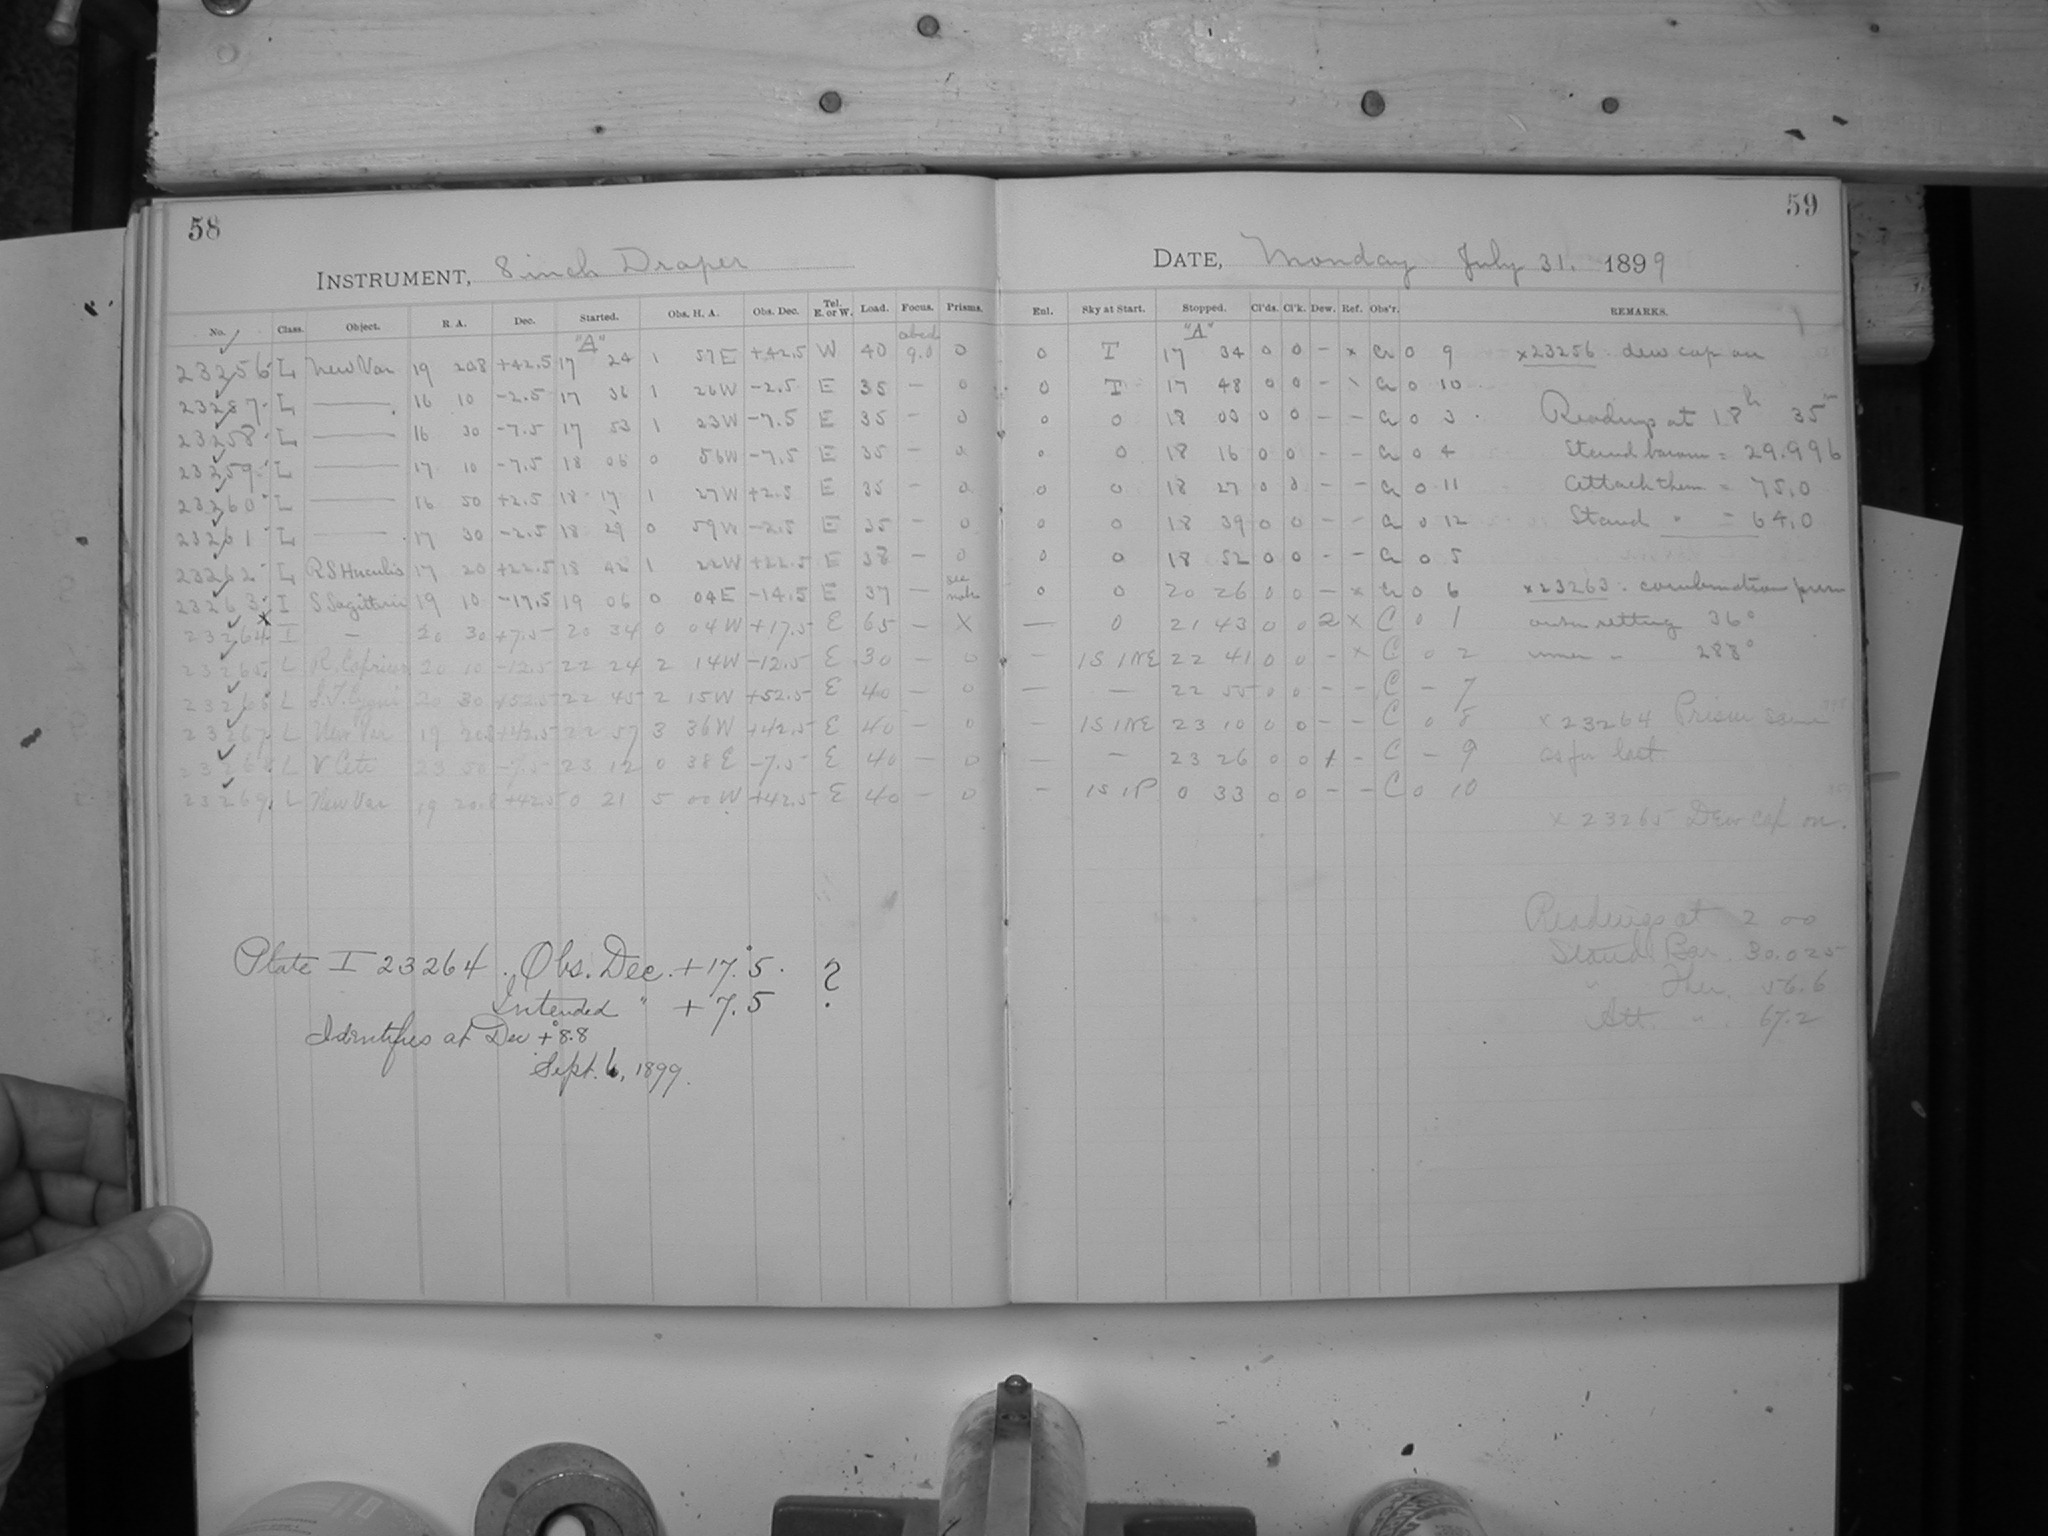 58
INSTRUMENT, 8 inch Draper
No. Class. Object. R. A. Dec. Started. Obs. H. A. Obs. Dec. Tel. E. or W. Load. Focus. Prisms.
"A"
23256 L New Var 19 20.8 +42.5 17 24 1 57 E +42.5 W 40 9.0 0
23257 L —— 16 10 -2.5 17 36 1 26 W -2.5 E 35 - 0
23258 L —— 16 30 -7.5 17 53 1 23 W -7.5 E 35 - 0
23259 L —— 17 10 -7.5 18 06 0 56 W -7.5 E 35 - 0
23260 L —— 16 50 +2.5 18 17 1 27 W +2.5 E 35 - 0
23261 L —— 17 30 -2.5 18 29 0 59 W -2.5 E 35 - 0
23262 L RS Herculis 17 20 +22.5 18 42 1 22 W +22.5 E 38 - 0
23263 I S Sagittarii 19 10 -17.5 19 06 0 04 E -14.5 E 37 - see note
23264 I - 20 30 +7.5 20 34 0 04 W +17.5 E 65 - X
23265 L R. Capricor 20 10 -12.5 22 24 2 14 W -12.5 E 30 - 0
23266 L 20 30 +52.5 22 45 2 15 W +52.5 E 40 - 0
23267 L New Var 19 20.8 +42.5 22 57 3 36 W +42.5 E 40 - 0
23268 L V Ceti 23 50 -7.5 23 12 0 38 E -7.5 E 40 - 0
23269 L New Var 19 20.8 +42.5 0 21 5 00 W +42.5 E 40 - 0
Plate I 23264. Obs. Dec. +17°.5. ?
Intended " +7.5
Identifies at Dec +8°.8
Sept. 6, 1899.
59
DATE, Monday July 31. 1899
Eul. Sky at Start. Stopped. Cl'ds. Cl'k. Dew. Ref. Obs'r. REMARKS.
"A"
0 T 17 34 0 0 - x Cr 0 9 x23256. dew cap on
0 T 17 48 0 0 - \ Cr 0 10
0 0 18 03 0 0 - - Cr 0 3 Readings at 18h 35m
0 0 18 16 0 0 - - Cr 0 4 Stand barom = 29.996
0 0 18 27 0 0 - - Cr 0 11 Attach them = 75.0
0 0 18 39 0 0 - - Cr 0 12 Stand " = 64.0
0 0 18 52 0 0 - - Cr 0 5
0 0 20 26 0 0 - x Cr 0 6 x23263. combination prism
— 0 21 43 0 0 2 x C 0 1 outer setting 36°
- 1S 1NE 22 41 0 0 - x C 0 2 inner " 288°
— — 22 55 0 0 - - C - 7
- 1S 1NE 23 10 0 0 - - C 0 8 x 23264 Prism same
- - 23 26 0 0 1 - C - 9 as for last
- 1S 1P 0 33 0 0 - - C 0 10
x 23265 Dew cap on.
Readings at 2 00
Stand. Bar. 30.025
" Ther. 56.6
Att. " . 67.2